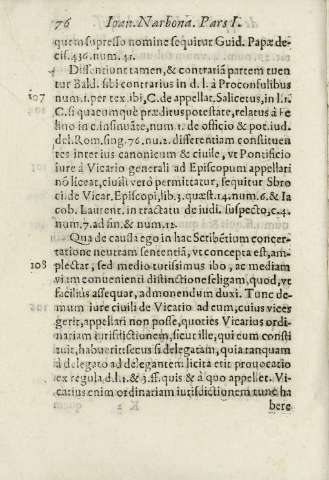 76 Ioan. Narbona. Pars I.
quem supresso nomine sequitur Guid. Papæ de-
cis. 436. num. 41.
Dissentiunt tamen, & contrariã partem tuen
tur Bald. sibi contrarius in d. l. à Proconsulibus
107 num. 1. per tex. ibi, C. de appellat. Salicetus, in l. 1.
C. si quacumquè præditus potestate, relatus à Fe
lino in c. insinuãte, num 1. de officio & pot. iud.
del. Rom. sing. 76. nu. 2. differentiam constituen
tes inter ius canonicum & ciuile, vt Pontificio
iure à Vicario generali ad Episcopum appellari
nõ liceat, ciuili verò permittatur, sequitur Sbro
ci de Vicar. Episcopi, lib. 3. quæst. 14. num. 6. & Ia
cob. Laurent. in tractatu de iudi. suspecto, c. 4.
num. 7. ad fin. & num. 12.
Qua de caussa ego in hac Scribẽtium concer-
tatione neutram sententiã, vt concepta est, am-
108 plectar, sed medio tutissimus ibo, ac mediam
viam conuenienti distinctione seligam, quod, vt
facilius assequar, admonendum duxi. Tunc de-
mum iure ciuili de Vicario ad eum, cuius vices
gerit, appellari non posse, quoties Vicarius ordi-
nariam iurisdictionem, sicut ille, qui eum consti
tuit, habuerit: secus si delegatam, quia tanquam
à delegato ad delegantem licita erit prouocatio
ex regula d. l. 1. & 3. ff. quis & à quo appellet. Vi-
carius enim ordinariam iurisdictionem tunc ha
bere